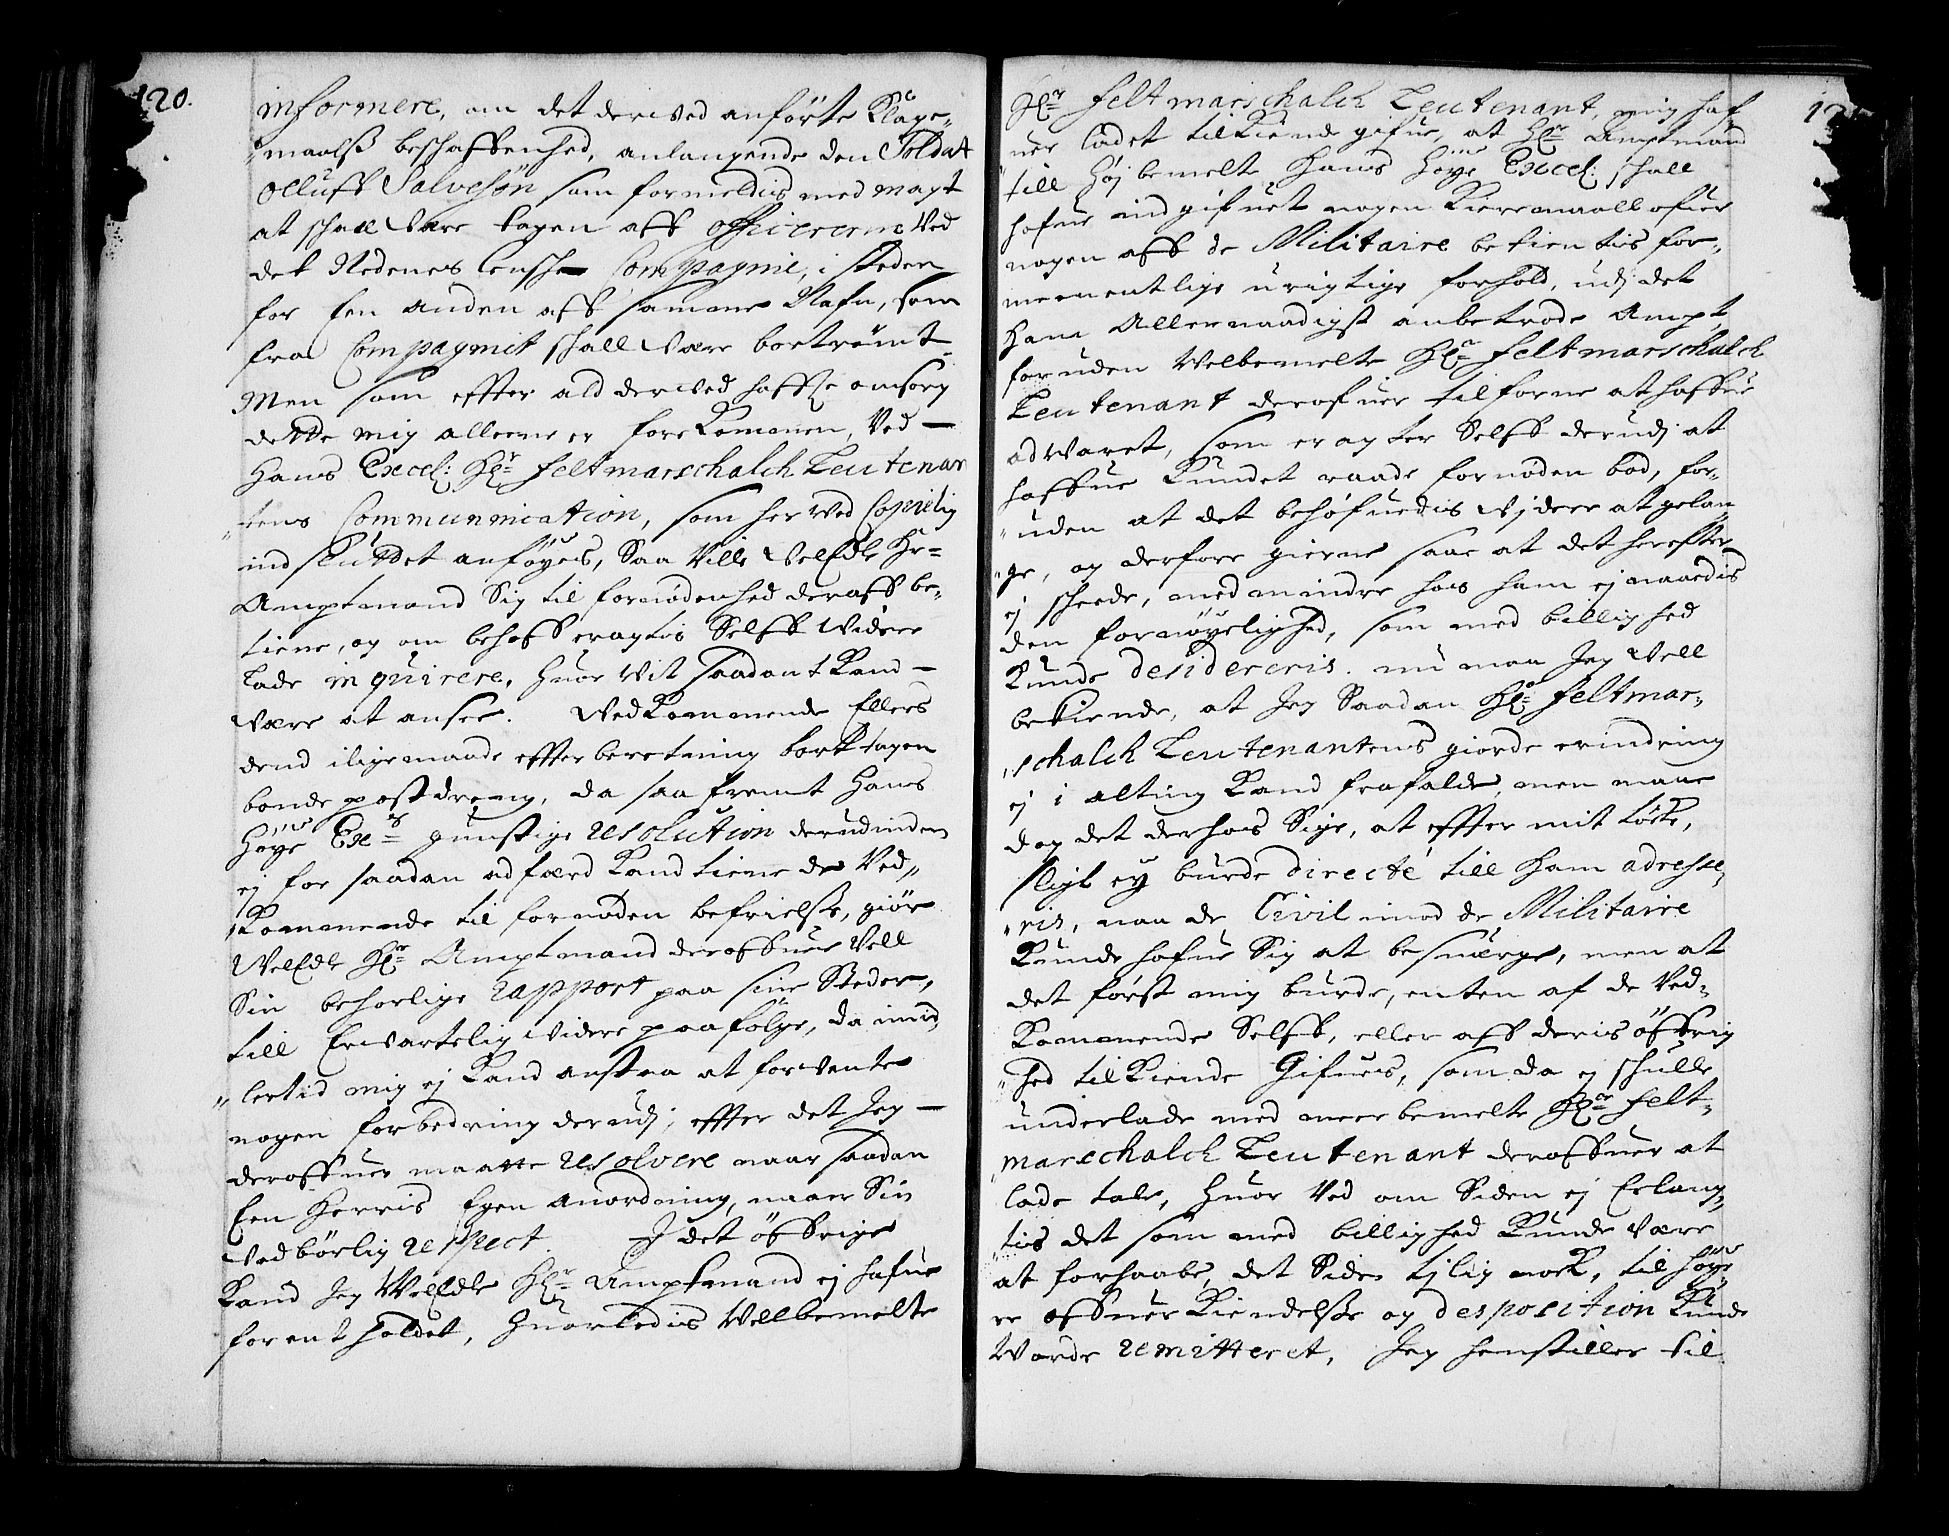 120.
informere, om det derved anførte Klage-
maalss beschaffenhed, anlangende den Soldat
Olluff Salvesøn som formeldis med magt
at schal være tagen aff officererne ved
det Nedenes Lensche Compagnie, i steden
for Een anden aff samme Nafn, som
fra Compagniet schall være bortrømt
Men som effter ald derved hafft omsorg
dette mig alleene er forekommen, ved
Hans Excel: Hr: Feltmarschalch Leutenan
tens Communication, som herved Copielig
indsluttet anføyes, Saa ville WelEdle Hr=
Amptmand Sig til fornødenhed deraff be-
tiene, og om behoff eragtis Selff videre
lade inquirere, huor vit saadant Kand
være at ansee. Vedkommende Ellers
dend iligemaade effter beretning borttagen
bonde postdreng, da saafremt Hans
Høye Exe: gunstige resolution derudinden
ej for saadan adfærd Kand tiene de Ved-
Kommende til fornøden befrielse, giør
WelEdle Hr: Amptmand deroffuer Vell
Sin behørlige rapport paa sine Steder,
till Erwartelig videre paafølge, da imid
lertid mig ej Kand anstaa at forvente
nogen forbedring derudj, effter det Jeg
deroffuer maatte resolvere naar saadan
Een Herris Egen anordning, naaer Sin
vedbørlig respect. J det öffrige
Kand Jeg WelEdle Hr: Amptmand ej hafue
forentholdet, huorledis Wellbemelte
12
Hr: Feltmarschalch Leutenant, mig haf
uer ladet tilkiende gifue, at Hr: Amptmand
till høj bemelte Hans Høye Excel: schall
hafue indgifuet nogen Kieremaall ofuer
nogen aff de Militaire betientis for-
meenentlige urigtige forhold, udj det
ham Allernaadigst anbetrode Ampt,
foruden Velbemelte Hr: Feltmarschalch
Leutenant derofuer tilforne at haffue
advaret, som eragter Selff derudj at
haffue Kundet raade fornøden bod, for-
uden at det behøfuedis vjdere at gelan
ge, og derfore gierne saae at det hereffter
ej scheede, med mindre hos ham ej naaedis
den fornøyelighed, som med billighed
Kunde desidereris. nu maa Jeg vell
bekiende, at Jeg Saadan Hr: Feltmar-
schalch Leutenantens giorde erindring
ej i alting Kand frafalde, men maae
dog det derhos Sige, at effter mit tøcke,
sligt ey burde directé till ham adresse
ris, naa de Civil imod de Militaire
Kunde hafue Sig at besuærge, men at
det først mig burde, enten af de Ved-
Kommende Selff, eller aff deris öffrig
hed tilkiende Gifues, som da ej schulle
underlade med meerbemelte Hr: Felt-
marschalch Leutenant deroffuer at
lade tale, huor ved om Siden ej Erlang
tis det som med billighed Kunde være
at forhaabe, det Siden tjlig nock, til høye
re offuer Kiendelse og desposition Kunde
Vorde remitteret, Jeg henstiller til